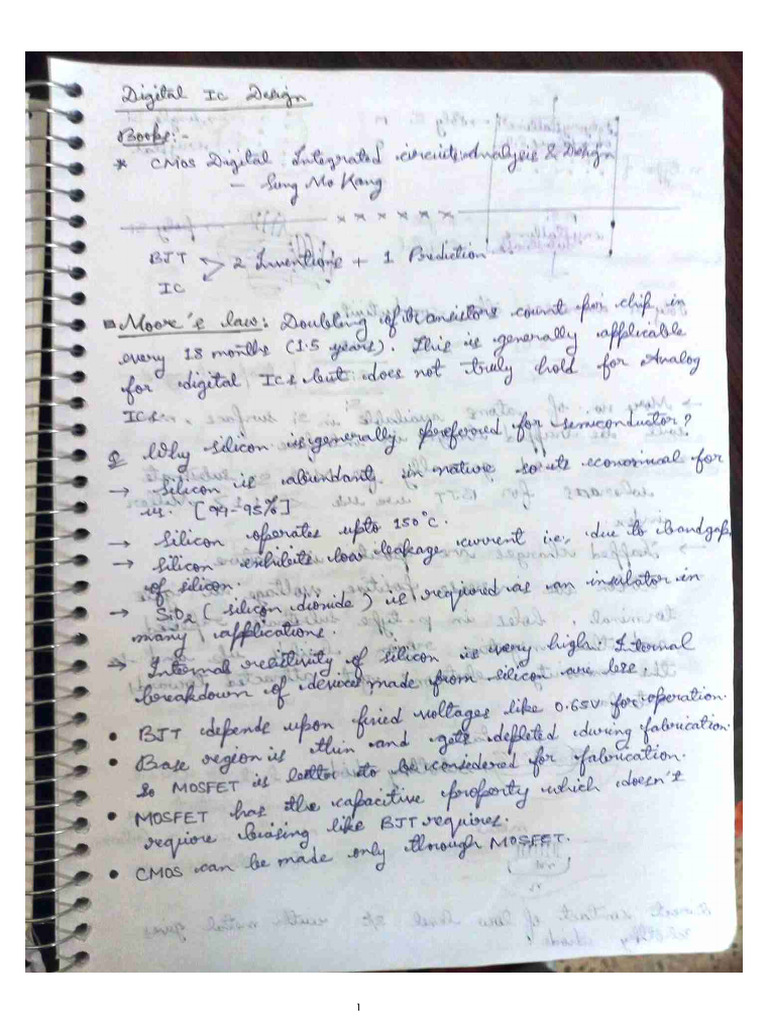 Digital IC Design
Books:-
* CMOS Digital Integrated circuits Analysis & Design
- Sung Mo Kang
x x x x x x
BJT > 2 Inventions + 1 Prediction
IC
Moore's law: Doubling of transistors count per chip in
every 18 months (1.5 years). This is generally applicable
for digital ICs but does not truly hold for Analog
ICs.
Q Why silicon is generally preferred for semiconductor?
→ Silicon is abundantly in nature so its economical for
us. [94-95%]
→ Silicon operates upto 150°C.
→ Silicon exhibits low leakage current i.e. due to bandgap
of silicon.
→ SiO2 (silicon dioxide) is required as an insulator in
many applications.
→ Internal resistivity of silicon is very high. Internal
breakdown of devices made from silicon are less.
• BJT depends upon fixed voltages like 0.65V for operation.
• Base region is thin and gets depleted during fabrication.
So MOSFET is better to be considered for fabrication.
• MOSFET has the capacitive property which doesn't
require biasing like BJT requires.
• CMOS can be made only through MOSFET.
1